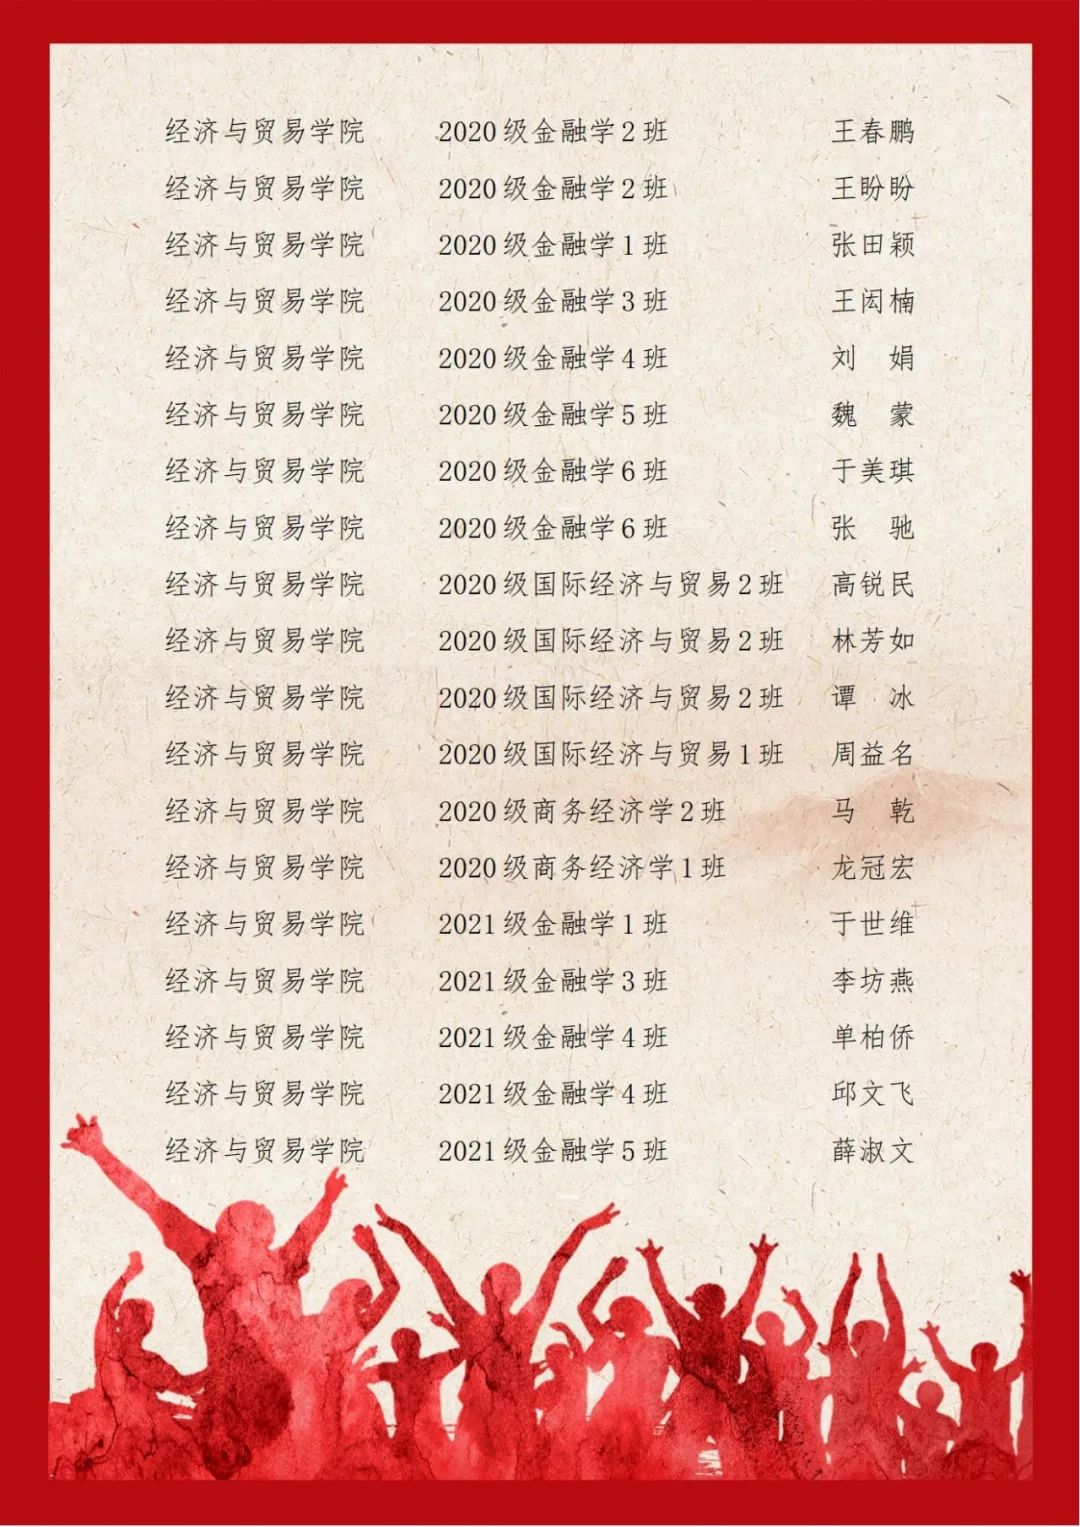 经济与贸易学院 2020级金融学2班 王春鹏
经济与贸易学院 2020级金融学2班 王盼盼
经济与贸易学院 2020级金融学1班 张田颖
经济与贸易学院 2020级金融学3班 王闳楠
经济与贸易学院 2020级金融学4班 刘　娟
经济与贸易学院 2020级金融学5班 魏　蒙
经济与贸易学院 2020级金融学6班 于美琪
经济与贸易学院 2020级金融学6班 张　驰
经济与贸易学院 2020级国际经济与贸易2班 高锐民
经济与贸易学院 2020级国际经济与贸易2班 林芳如
经济与贸易学院 2020级国际经济与贸易2班 谭　冰
经济与贸易学院 2020级国际经济与贸易1班 周益名
经济与贸易学院 2020级商务经济学2班 马　乾
经济与贸易学院 2020级商务经济学1班 龙冠宏
经济与贸易学院 2021级金融学1班 于世维
经济与贸易学院 2021级金融学3班 李坊燕
经济与贸易学院 2021级金融学4班 单柏侨
经济与贸易学院 2021级金融学4班 邱文飞
经济与贸易学院 2021级金融学5班 薛淑文